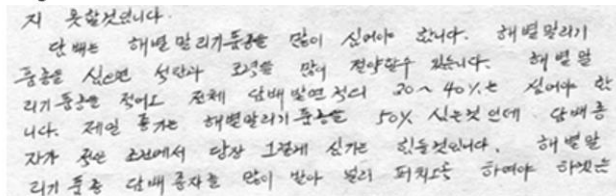 지 못할것입니다.
담배는 해볕말리기품종을 많이 심어야 합니다. 해볕말리기
품종을 심으면 석탄과 로력을 많이 절약할수 있습니다. 해볕말
리기품종을 적어도 전체 담배밭면적의 20~40%는 심어야 합
니다. 제일 좋기는 해볕말리기품종을 50% 심는것인데 담배종
자가 적은 조건에서 당장 그렇게 심기는 힘들것입니다. 해볕말
리기품종 담배종자를 많이 받아 널리 퍼치도록 하여야 하겠습